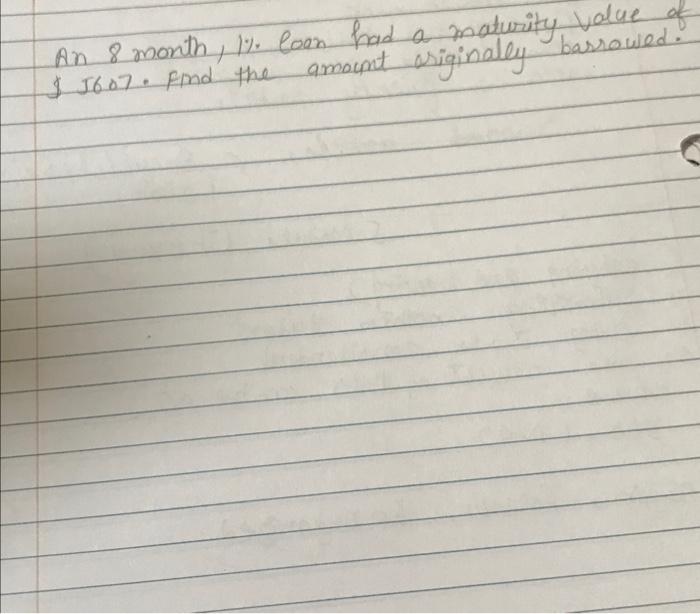 An 8 month, 1%. loan had a maturity value of
$ 5607. Find the amount originaley barrowed.